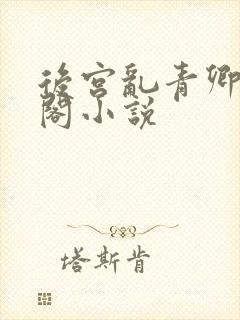 後宮亂青卿
閣小說
塔斯肯